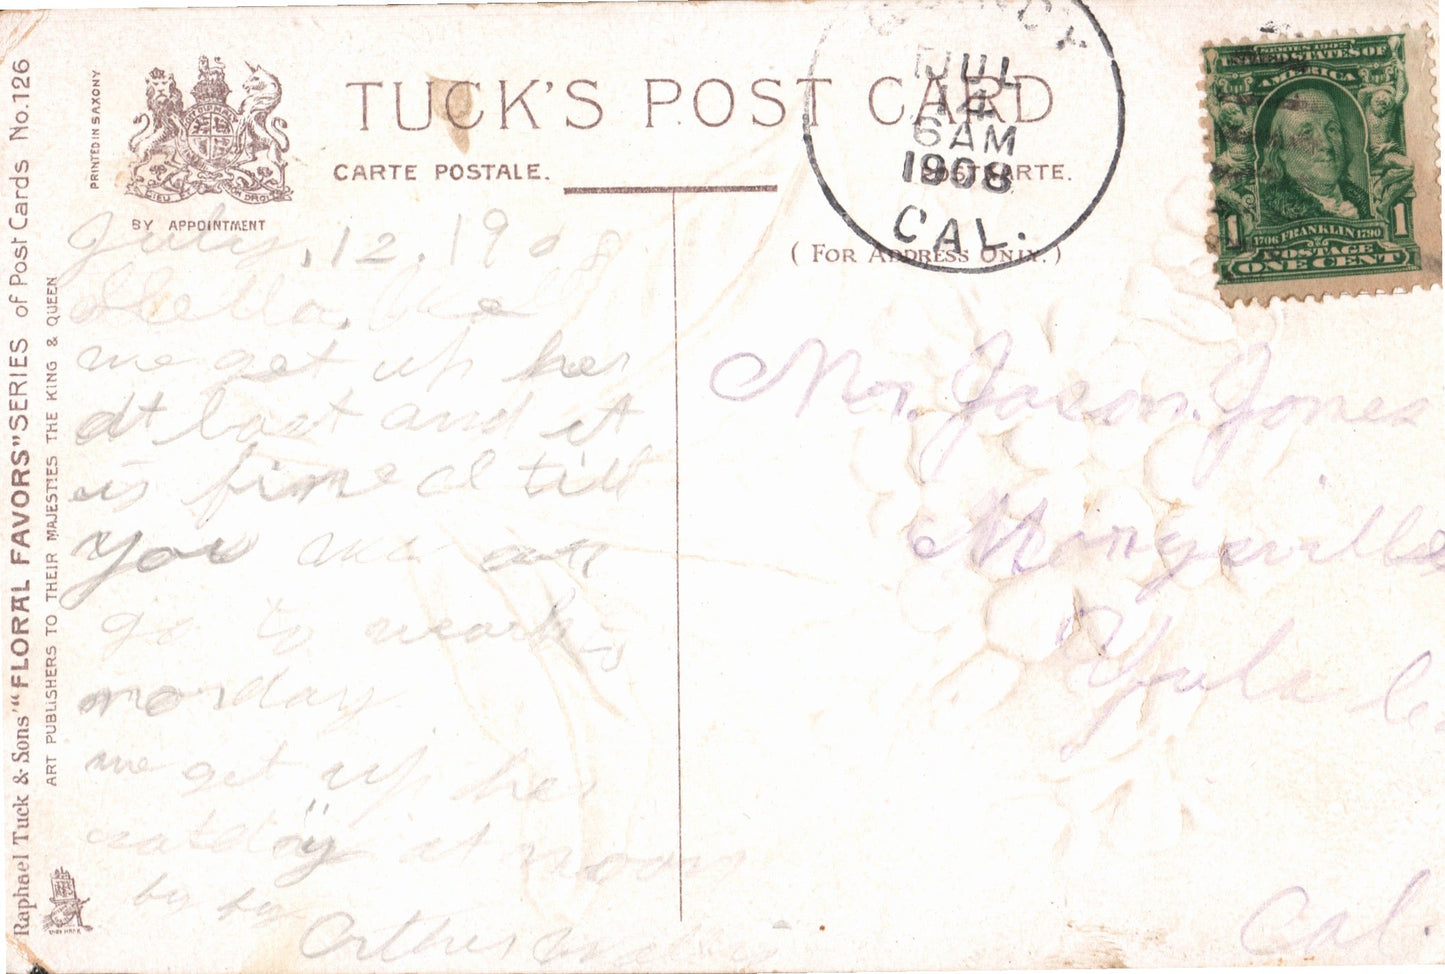 Raphael Tuck & Sons' "FLORAL FAVORS" SERIES of Post Cards No. 126
ART PUBLISHERS TO THEIR MAJESTIES THE KING & QUEEN
PRINTED IN SAXONY
DIEU DROIT
BY APPOINTMENT
TUCK'S POST CARD
CARTE POSTALE.
POSTKARTE.
( FOR ADDRESS ONLY. )
JUL
14
6 AM
1908
CAL.
SERIES 1902
UNITED STATES OF
AMERICA
1 1
1706 FRANKLIN 1790
POSTAGE
ONE CENT
July, 12, 1908
Hello,
we get up her
at last and it
is fine
you
go to work
monday
we get up her
at noon
by by
Mr. Jason. Jones
Marysville
Yuba
Cal.